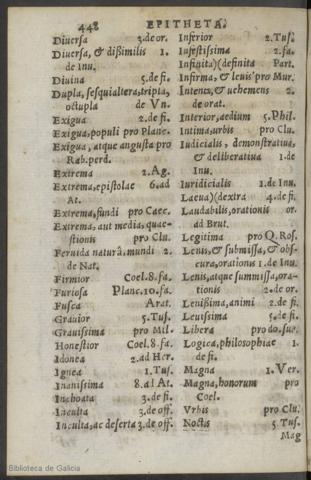 448 EPITHETA.
Diuersa 3.de or.
Diuersa, & dißimilis 1.
de Inu.
Diuina 5.de fi.
Dupla, sesquialtera, tripla,
octupla de Vn.
Exigua 2.de fi.
Exigua, populi pro Planc.
Exigua, atque angusta pro
Rab.perd.
Extrema 2.Ag.
Extrema, epistolae 6.ad
At.
Extrema, fundi pro Caec.
Extrema, aut media, quae-
stionis pro Clu.
Feruida naturâ, mundi 2.
de Nat.
Firmior Coel.8.fa.
Furiosa Planc.10.fa.
Fusca Arat.
Grauior 5.Tus.
Grauissima pro Mil.
Honestior Coel.8.fa.
Idonea 2.ad Her.
Ignea 1.Tus.
Inanissima 8.ad At.
Inchoata 3.de fi.
Inculta 3.de off.
Inculta, ac deserta 3.de off.
Inferior 2.Tus.
Infestissima 2.fa.
Infinita)(definita Part.
Infirma, & leuis pro Mur.
Intenta, & uehemens 2.
de orat.
Interior, aedium 5.Phil.
Intima, urbis pro Clu.
Iudicialis, demonstratiua,
& deliberatiua 1.de
Inu.
Iuridicialis 1.de Inu.
Laeua)(dextra 4.de fi.
Laudabilis, orationis or.
ad Brut.
Legitima pro Q.Ros.
Lenis, & submissa, & obs-
cura, orationis 1.de Inu.
Lenis, atque summissa, ora-
tionis 2.de or.
Lenißima, animi 2.de fi.
Leuissima 5.de fi.
Libera pro do.sua.
Logica, philosophiae 1.
de fi.
Magna 1.Ver.
Magna, honorum pro
Coel.
Vrbis pro Clu.
Noctis 5.Tus.
Mag
Biblioteca de Galicia